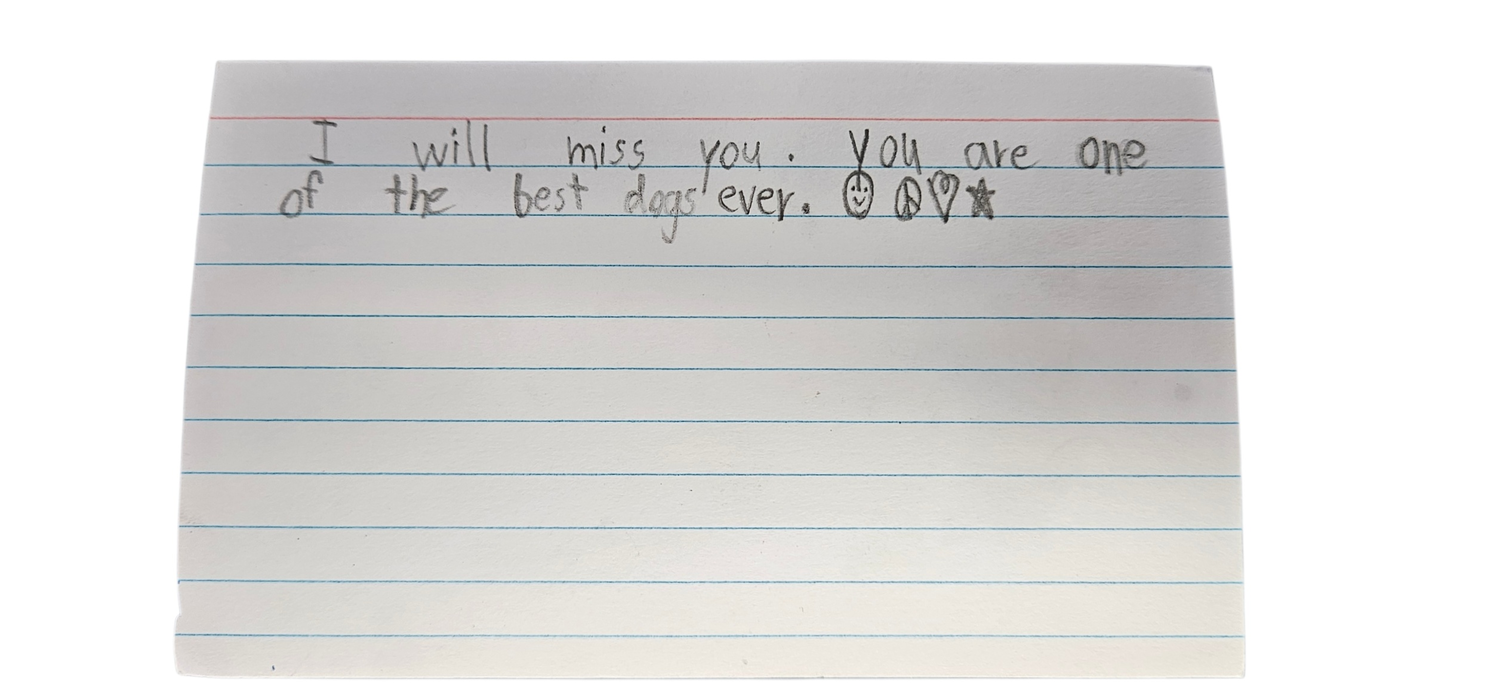 I will miss you. You are one
of the best dogs ever. ☺ ☮ ♡ ★